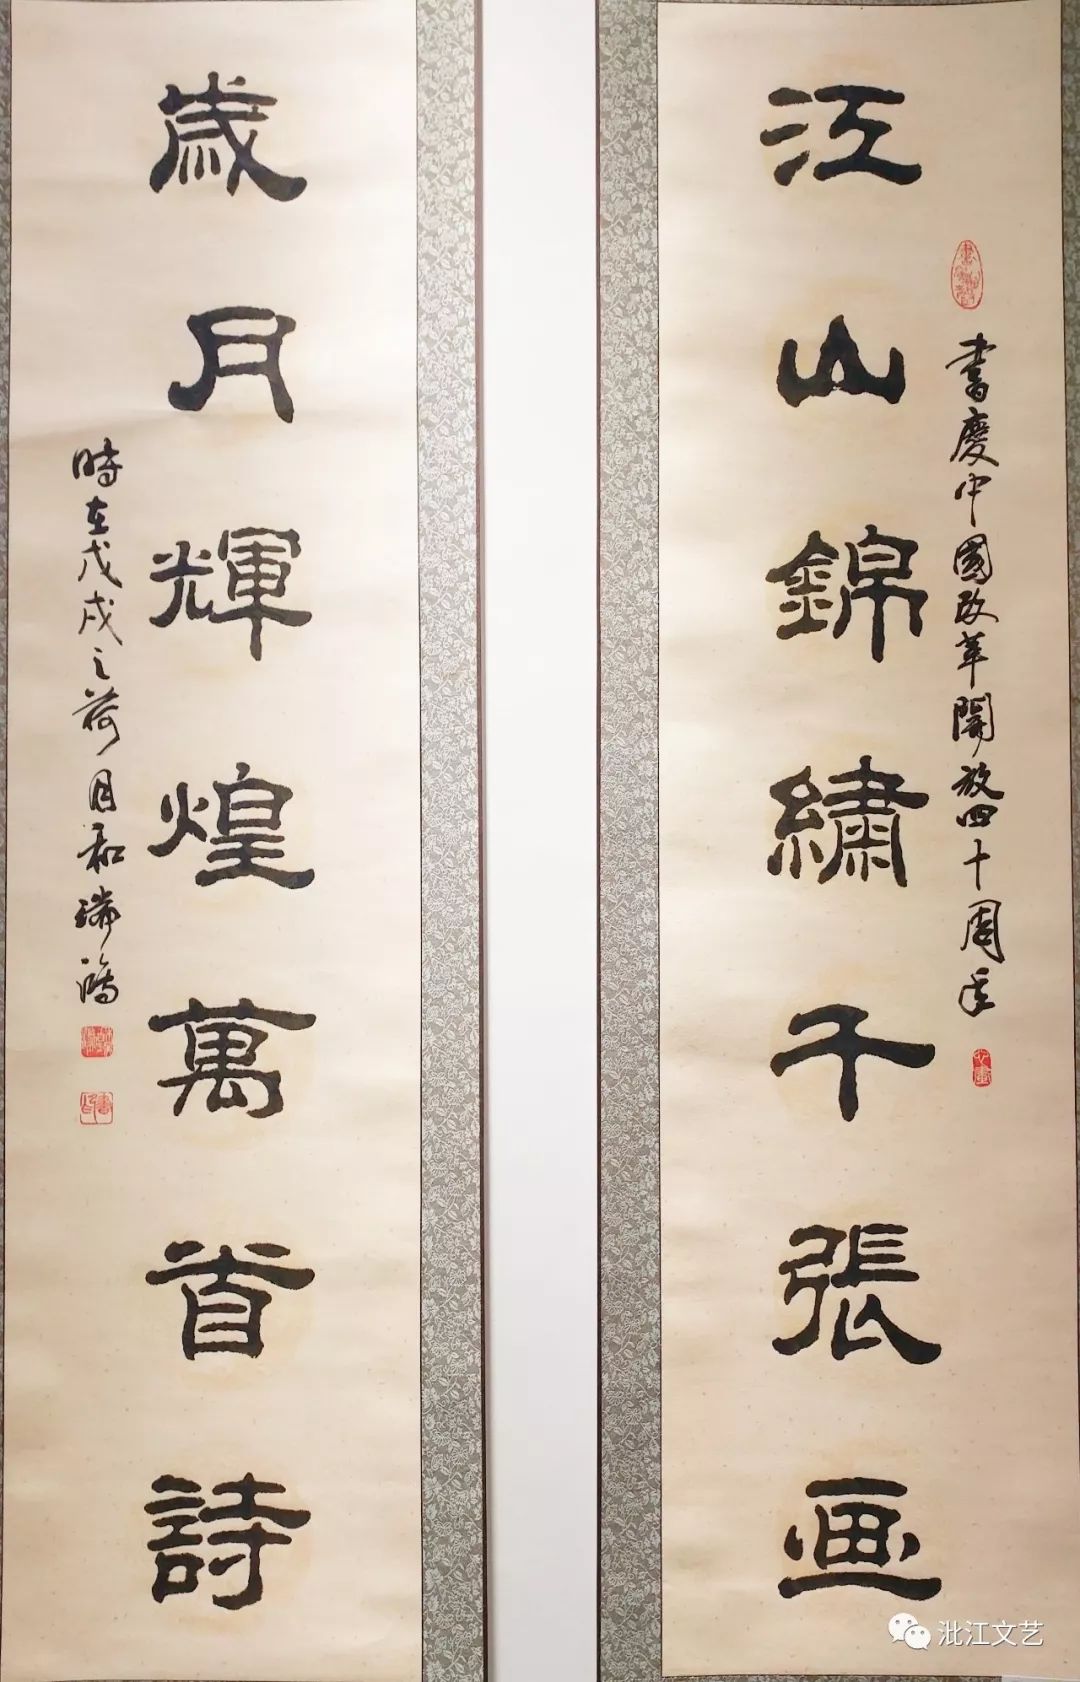 江山錦繡千張画
書慶中國改革開放四十周年
歲月輝煌萬首詩
時在戊戌之荷月和瑞鴻
沘江文艺